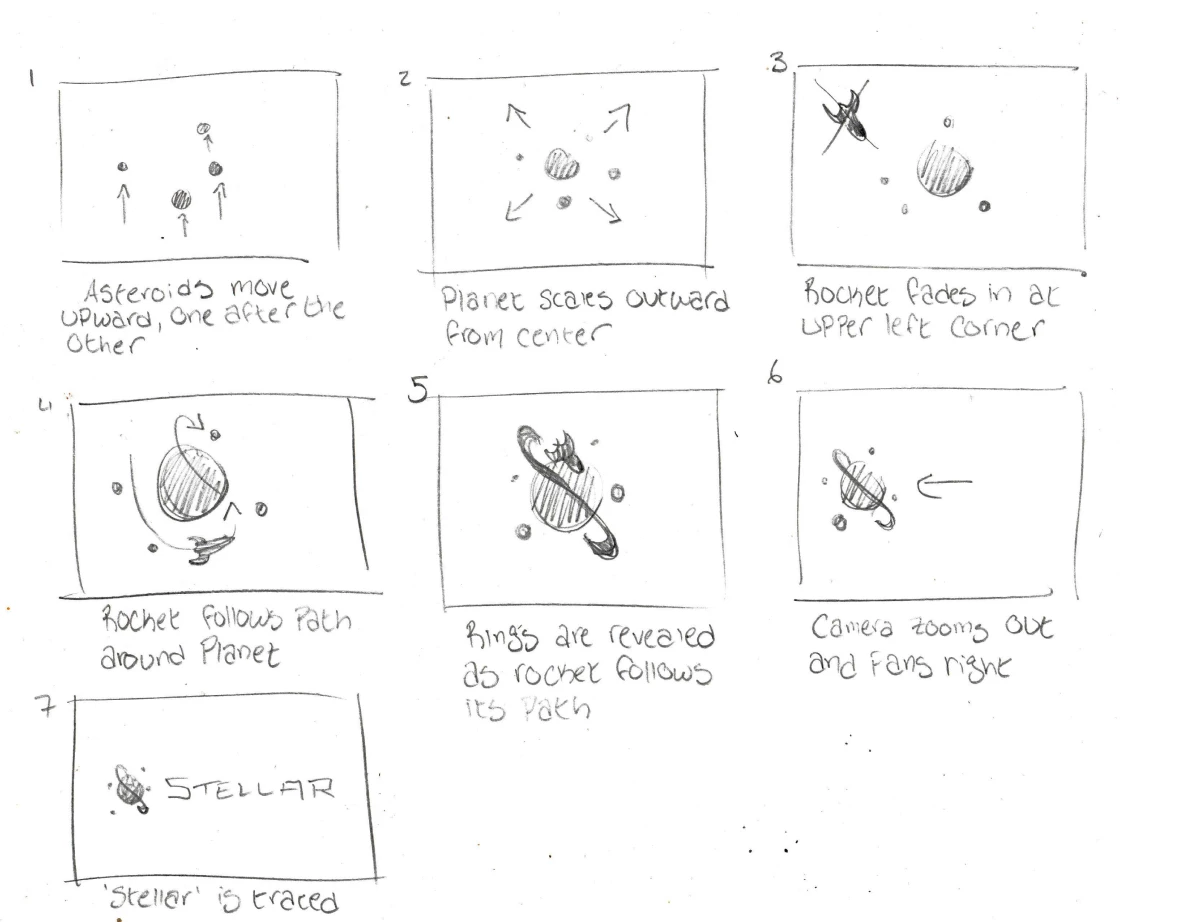 1
Asteroids move
upward, one after the
other
2
Planet scales outward
from center
3
Rocket fades in at
upper left corner
4
Rocket follows path
around Planet
5
Rings are revealed
as rocket follows
its path
6
Camera zooms out
and Pans right
7
STELLAR
'Stellar' is traced